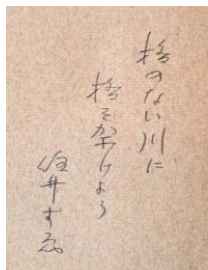 橋のない川に
橋を架けよう
住井すゑ